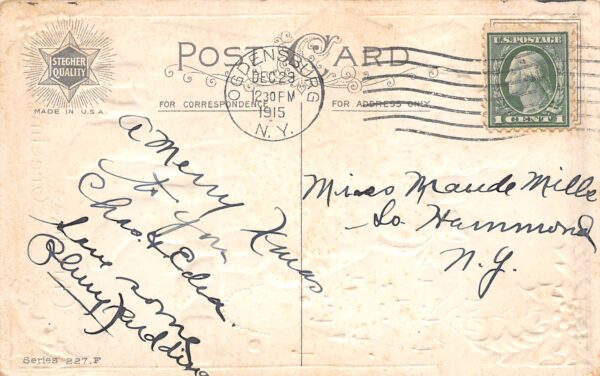 STECHER
QUALITY
MADE IN U.S.A.
POST CARD
OGDENSBURG
DEC 23
1230 PM
1915
N.Y.
U.S. POSTAGE
1 CENT 1
FOR CORRESPONDENCE
FOR ADDRESS ONLY
A Merry Xmas
to you
Chas & Edna.
Save some
Plum Pudding
Miss Maude Mills
So Hammond
N.Y.
Series 227.F